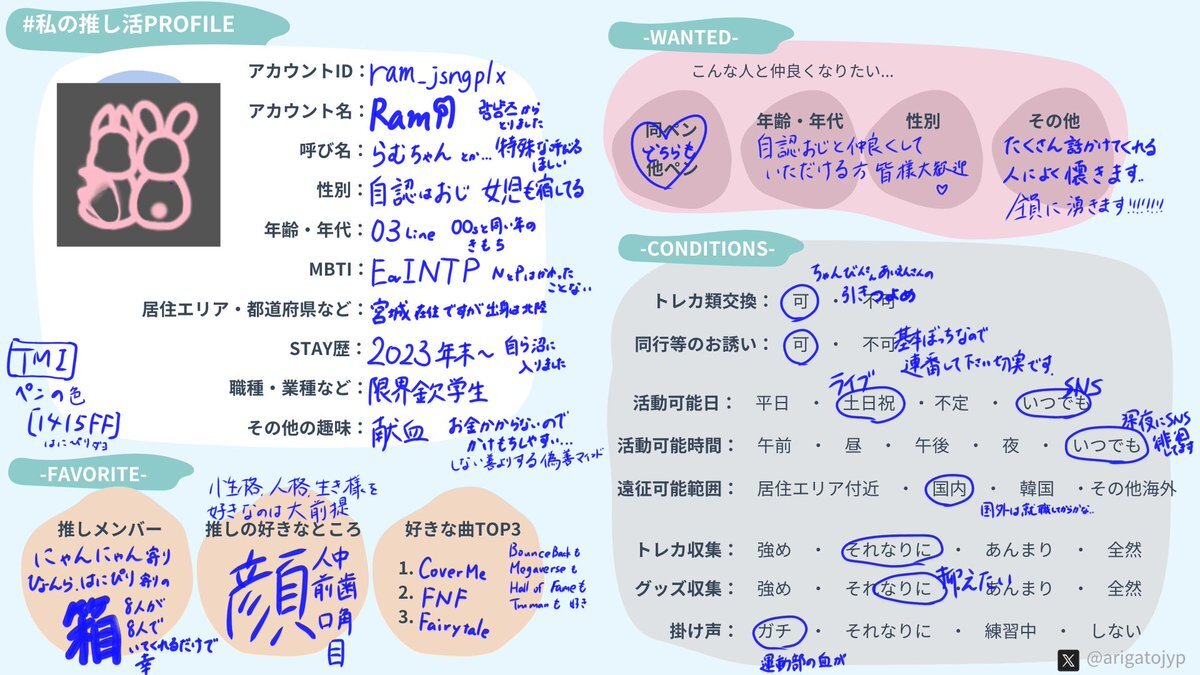 #私の推し活PROFILE
アカウントID：ram_jsngplx
アカウント名：Ram
からとりました
呼び名：らむちゃん とか… 特殊な呼び名ほしい
性別：自認はおじ 女児も宿してる
年齢・年代：03 Line 00sと同い年のきもち
MBTI：E or INTP NとPはかわったことない
居住エリア・都道府県など：宮城在住ですが出身は北陸
STAY歴：2023年末〜 自ら沼に入りました
職種・業種など：限界金欠学生
その他の趣味：献血 お金かからないのでかけもちしやすい…
しない善よりする偽善マインド
TMI
ペンの色
[1415FF]
はにぴりダヨ
-FAVORITE-
推しメンバー
にゃんにゃん寄り
ひなんら、はにぴり寄りの
箱
8人が
8人で
いてくれるだけで
幸
∥性格、人格、生き様を
好きなのは大前提
推しの好きなところ
顔
人中
前歯
口角
目
好きな曲TOP3
1. CoverMe
2. FNF
3. Fairytale
BounceBackも
Megaverseも
Hall of Fameも
Trumanも好き
-WANTED-
こんな人と仲良くなりたい...
同ペン
どちらも
他ペン
年齢・年代
性別
自認おじと仲良くして
いただける方 皆様大歓迎
その他
たくさん話かけてくれる
人によく懐きます..
全員に湧きます!!!!!!!
-CONDITIONS-
トレカ類交換：可 ・ 不可
引きつよめ
同行等のお誘い：可 ・ 不可
基本ぼっちなので
連番して下さい切実です.
ライブ
SNS
活動可能日：平日 ・ 土日祝 ・ 不定 ・ いつでも
深夜にSNS
徘徊してます
活動可能時間：午前 ・ 昼 ・ 午後 ・ 夜 ・ いつでも
遠征可能範囲：居住エリア付近 ・ 国内 ・ 韓国 ・ その他海外
国外は就職してからかな..
トレカ収集：強め ・ それなりに ・ あんまり ・ 全然
グッズ収集：強め ・ それなりに ・ あんまり ・ 全然
抑えたい
掛け声：ガチ ・ それなりに ・ 練習中 ・ しない
運動部の血が
X @arigatojyp